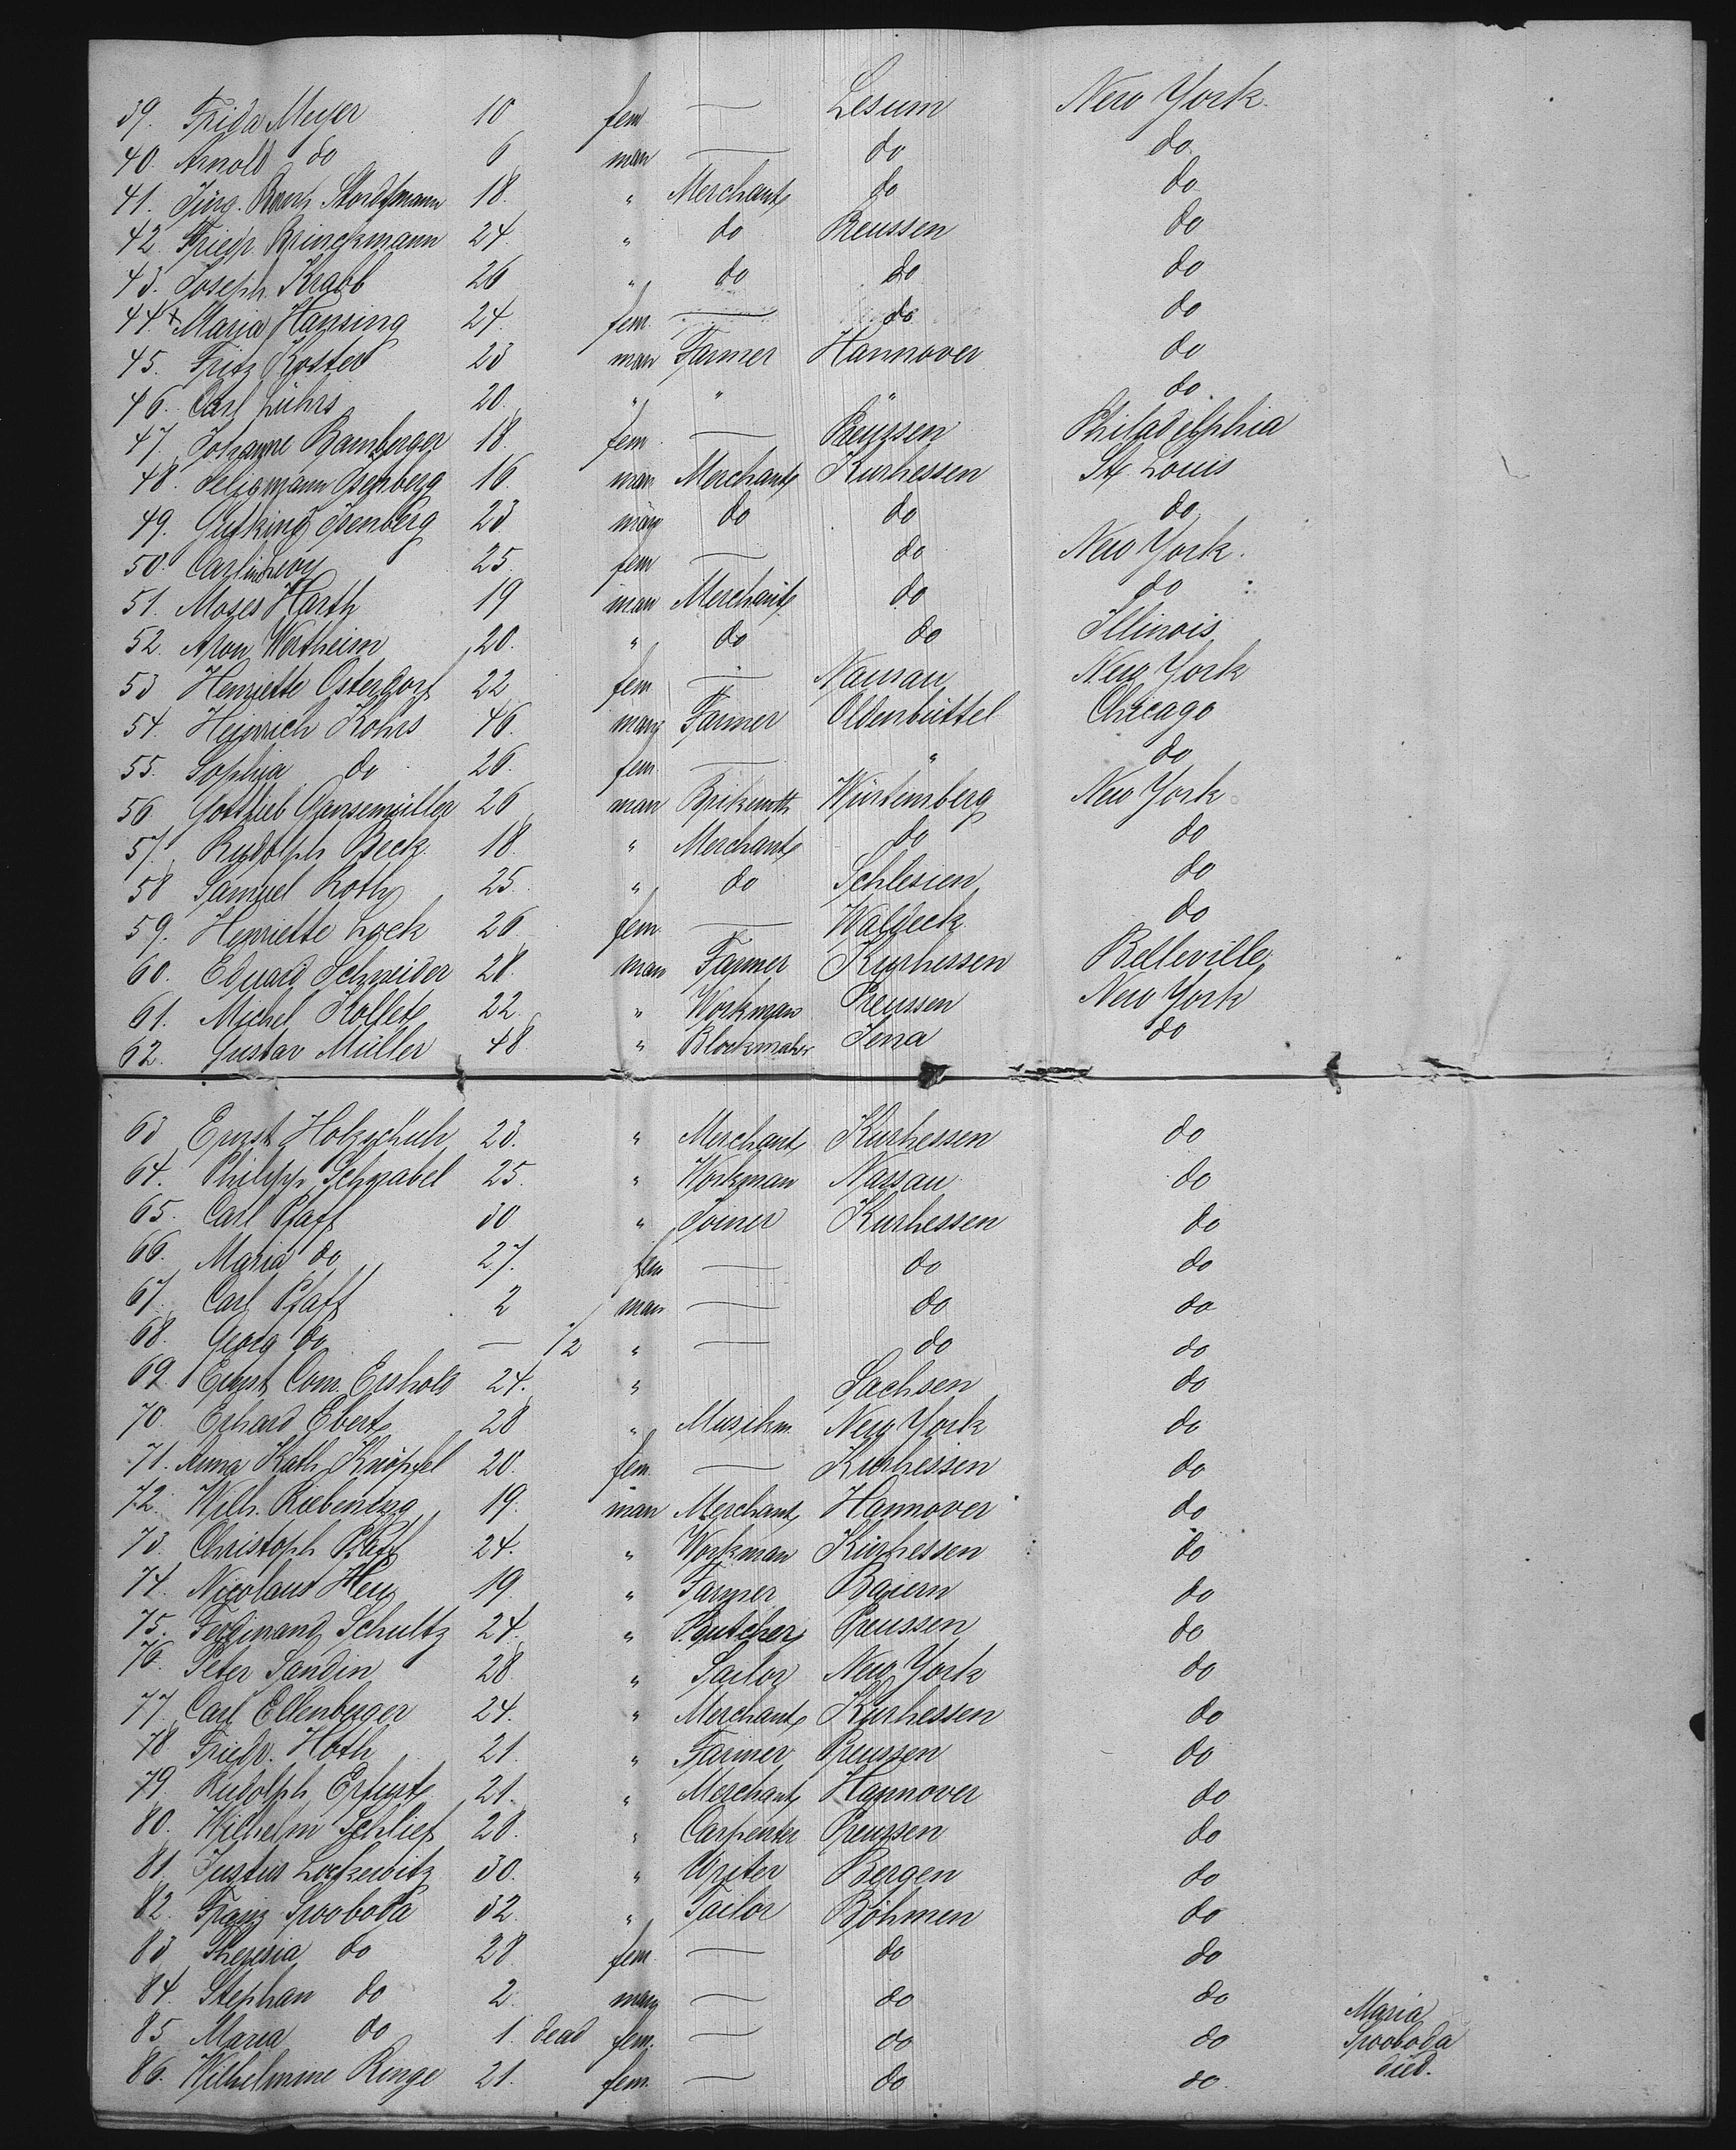 39. Frida Meyer 10 fem — Lesum New York.
40. Arnold do 6 man — do do
41. Jürg. Stordtmann 18. " Merchant do do
42 Friedr. Brinckmann 24. " do Preussen do
43. Joseph Kraob 26 " do do do
44 x Maria Hansing 24. fem. — do do
45. Fritz Koster 23 man Farmer Hannover do
46. Carl Lührs 20. " " " do
47. Johanne Bamberger 18. fem — Preussen Philadelphia
48. Seligmann Isenberg 16. man Merchant Kurhessen St. Louis
49. Gutkind Isenberg 23 man do do do
50. Carlina Levy 25. fem — do New York.
51. Moses Harth 19 man Merchant do do
52. Aron Wertheim 20. " do do Illinois
53 Henriette Osterdorf 22 fem — Nassau New York
54. Heinrich Kohrs 46. man Farmer Oldenbüttel Chicago
55. Sophia do 26. fem — " do
56 Gottlieb Gansemüller 26 man Würtemberg New York
57. Rudolph Beck 18. " Merchant do do
58 Samuel Roth 25. " do Schlesien do
59. Henriette Lock 26 fem. — Waldeck do
60. Eduard Schneider 28. man Farmer Kurhessen Belleville
61. Michel Kollet 22. " Workman Preussen New York
62. Gustav Müller 48 " Blockmaker Jena do
63 Ernst Holzschuh 23. " Merchant Kurhessen do
64. Philipp Schnabel 25. " Workman Nassau do
65. Carl Pfaff 30 " Joiner Kurhessen do
66. Maria do 27. fem — do do
67. Carl Pfaff 2 man — do do
68. Georg do — 1/2 " — do do
69 Ernst Con. 24. " Sachsen do
70. Erhard Ebert 28 " Musikm. New York do
71. Anna Kath. Knöpfel 20. fem. — Kurhessen do
72. Wilh. 19. man Merchant Hannover do
73. Christoph Pfaff 24. " Workman Kurhessen do
74. Nicolaus Hey 19 " Farmer Baiern do
75. Ferdinand Schultz 24. " Butcher Preussen do
76. Peter Sandin 28. " Sailor New York do
77. Carl Ellenberger 24. " Merchant Kurhessen do
78 Friedr. Hoth 21. " Farmer Preussen do
79. Rudolph Erfurt 21. " Merchant Hannover do
80. Wilhelm Schlief 28. " Carpenter Preussen do
81. Justus Lockewitz 30. " Writer Bergen do
82. Franz Swoboda 32. " Tailor Böhmen do
83 Theresia do 28. fem — do do
84. Stephan do 2. man — do do
85 Maria do 1. dead fem. — do do Maria Swoboda died.
86. Wilhelmine Renge 21. fem. — do do.